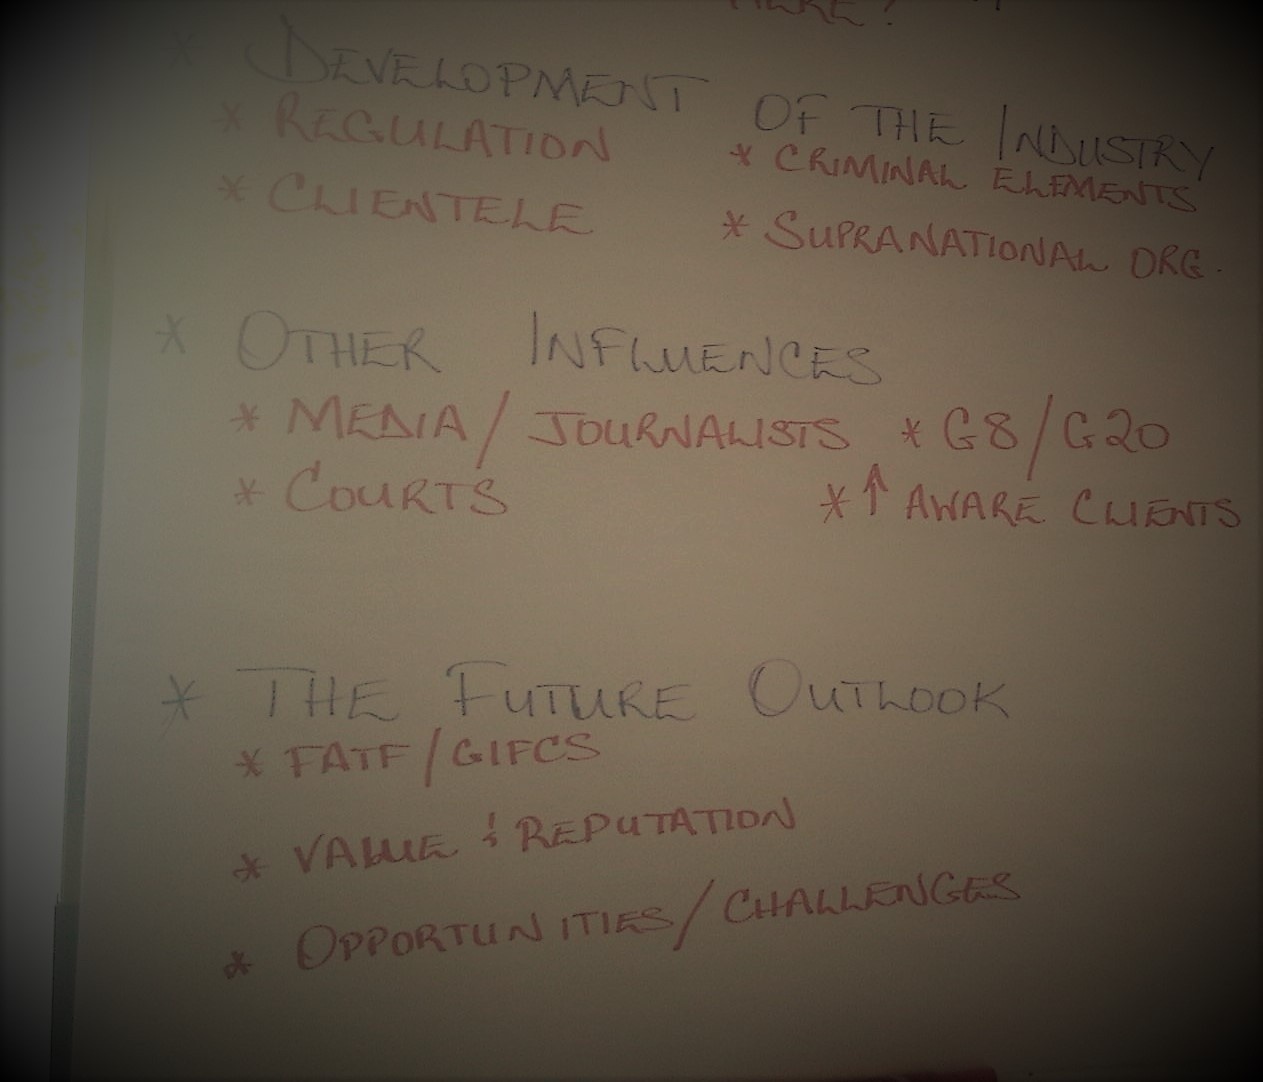 HERE?
* DEVELOPMENT OF THE INDUSTRY
* REGULATION * CRIMINAL ELEMENTS
* CLIENTELE * SUPRANATIONAL ORG.
* OTHER INFLUENCES
* MEDIA / JOURNALISTS * G8/G20
* COURTS * ↑ AWARE CLIENTS
* THE FUTURE OUTLOOK
* FATF/GIFCS
* VALUE & REPUTATION
* OPPORTUNITIES/CHALLENGES